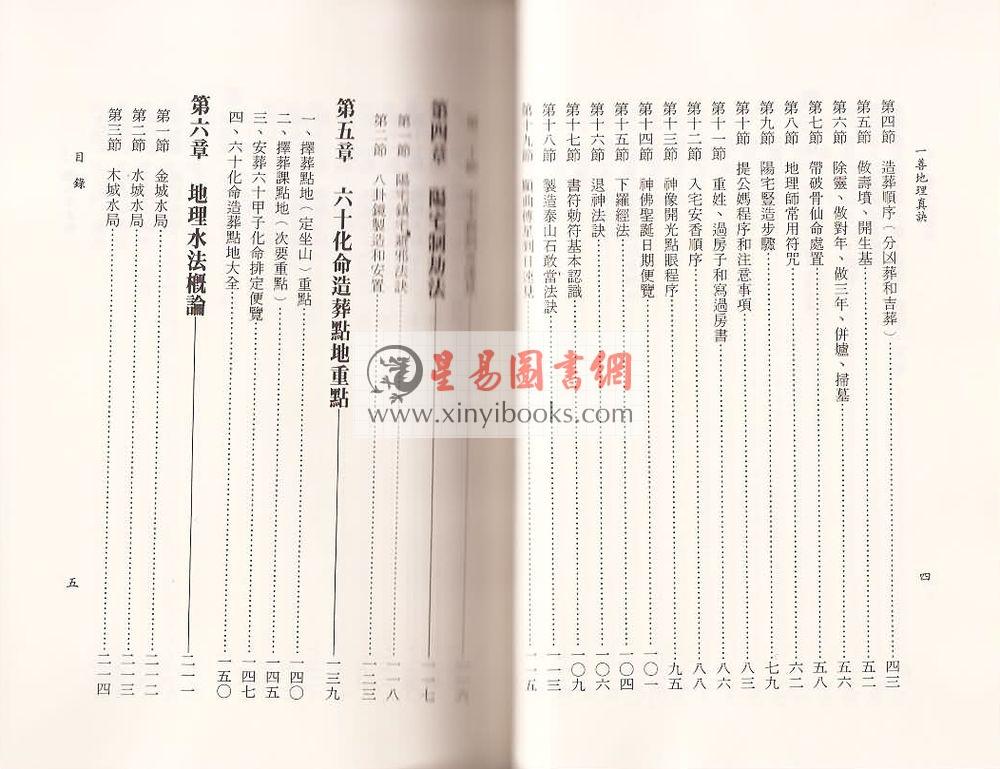 一善地理真訣
第四節　造葬順序(分凶葬和吉葬)……四三
第五節　做壽墳、開生基……五二
第六節　除靈、做對年、做三年、併爐、掃墓……五六
第七節　帶破骨仙命處置……五八
第八節　地理師常用符咒……六二
第九節　陽宅豎造步驟……七九
第十節　提公媽程序和注意事項……八三
第十一節　重姓、過房子和寫過房書……八六
第十二節　入宅安香順序……八八
第十三節　神像開光點眼程序……九五
第十四節　神佛聖誕日期便覽……一〇一
第十五節　下羅經法……一〇四
第十六節　退神法訣……一〇六
第十七節　書符勅符基本認識……一〇九
第十八節　製造泰山石敢當法訣……一一三
第十九節　顛曲傅星到日速見……一一五
四
第四章　陽宅制劫法……一一七
第一節　陽宅鎮宅避邪法訣……一一八
第二節　八卦鏡製造和安置……一二三
第五章　六十化命造葬點地重點……一三九
一、擇葬點地(定坐山)重點……一四〇
二、擇葬課點地(次要重點)……一四五
三、安葬六十甲子化命排定便覽……一四七
四、六十化命造葬點地大全……一五〇
第六章　地理水法概論……二一一
第一節　金城水局……二一二
第二節　水城水局……二一三
第三節　木城水局……二一四
目錄
五
星易圖書網
www.xinyibooks.com